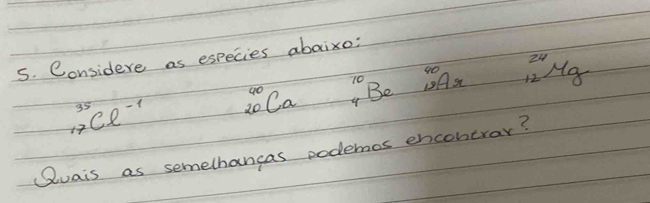 5. Considere as espécies abaixo:
³⁵₁₇Cl⁻¹ ⁴⁰₂₀Ca ¹⁰₄Be ⁴⁰₁₈Ar ²⁴₁₂Mg
Quais as semelhanças podemos encontrar?